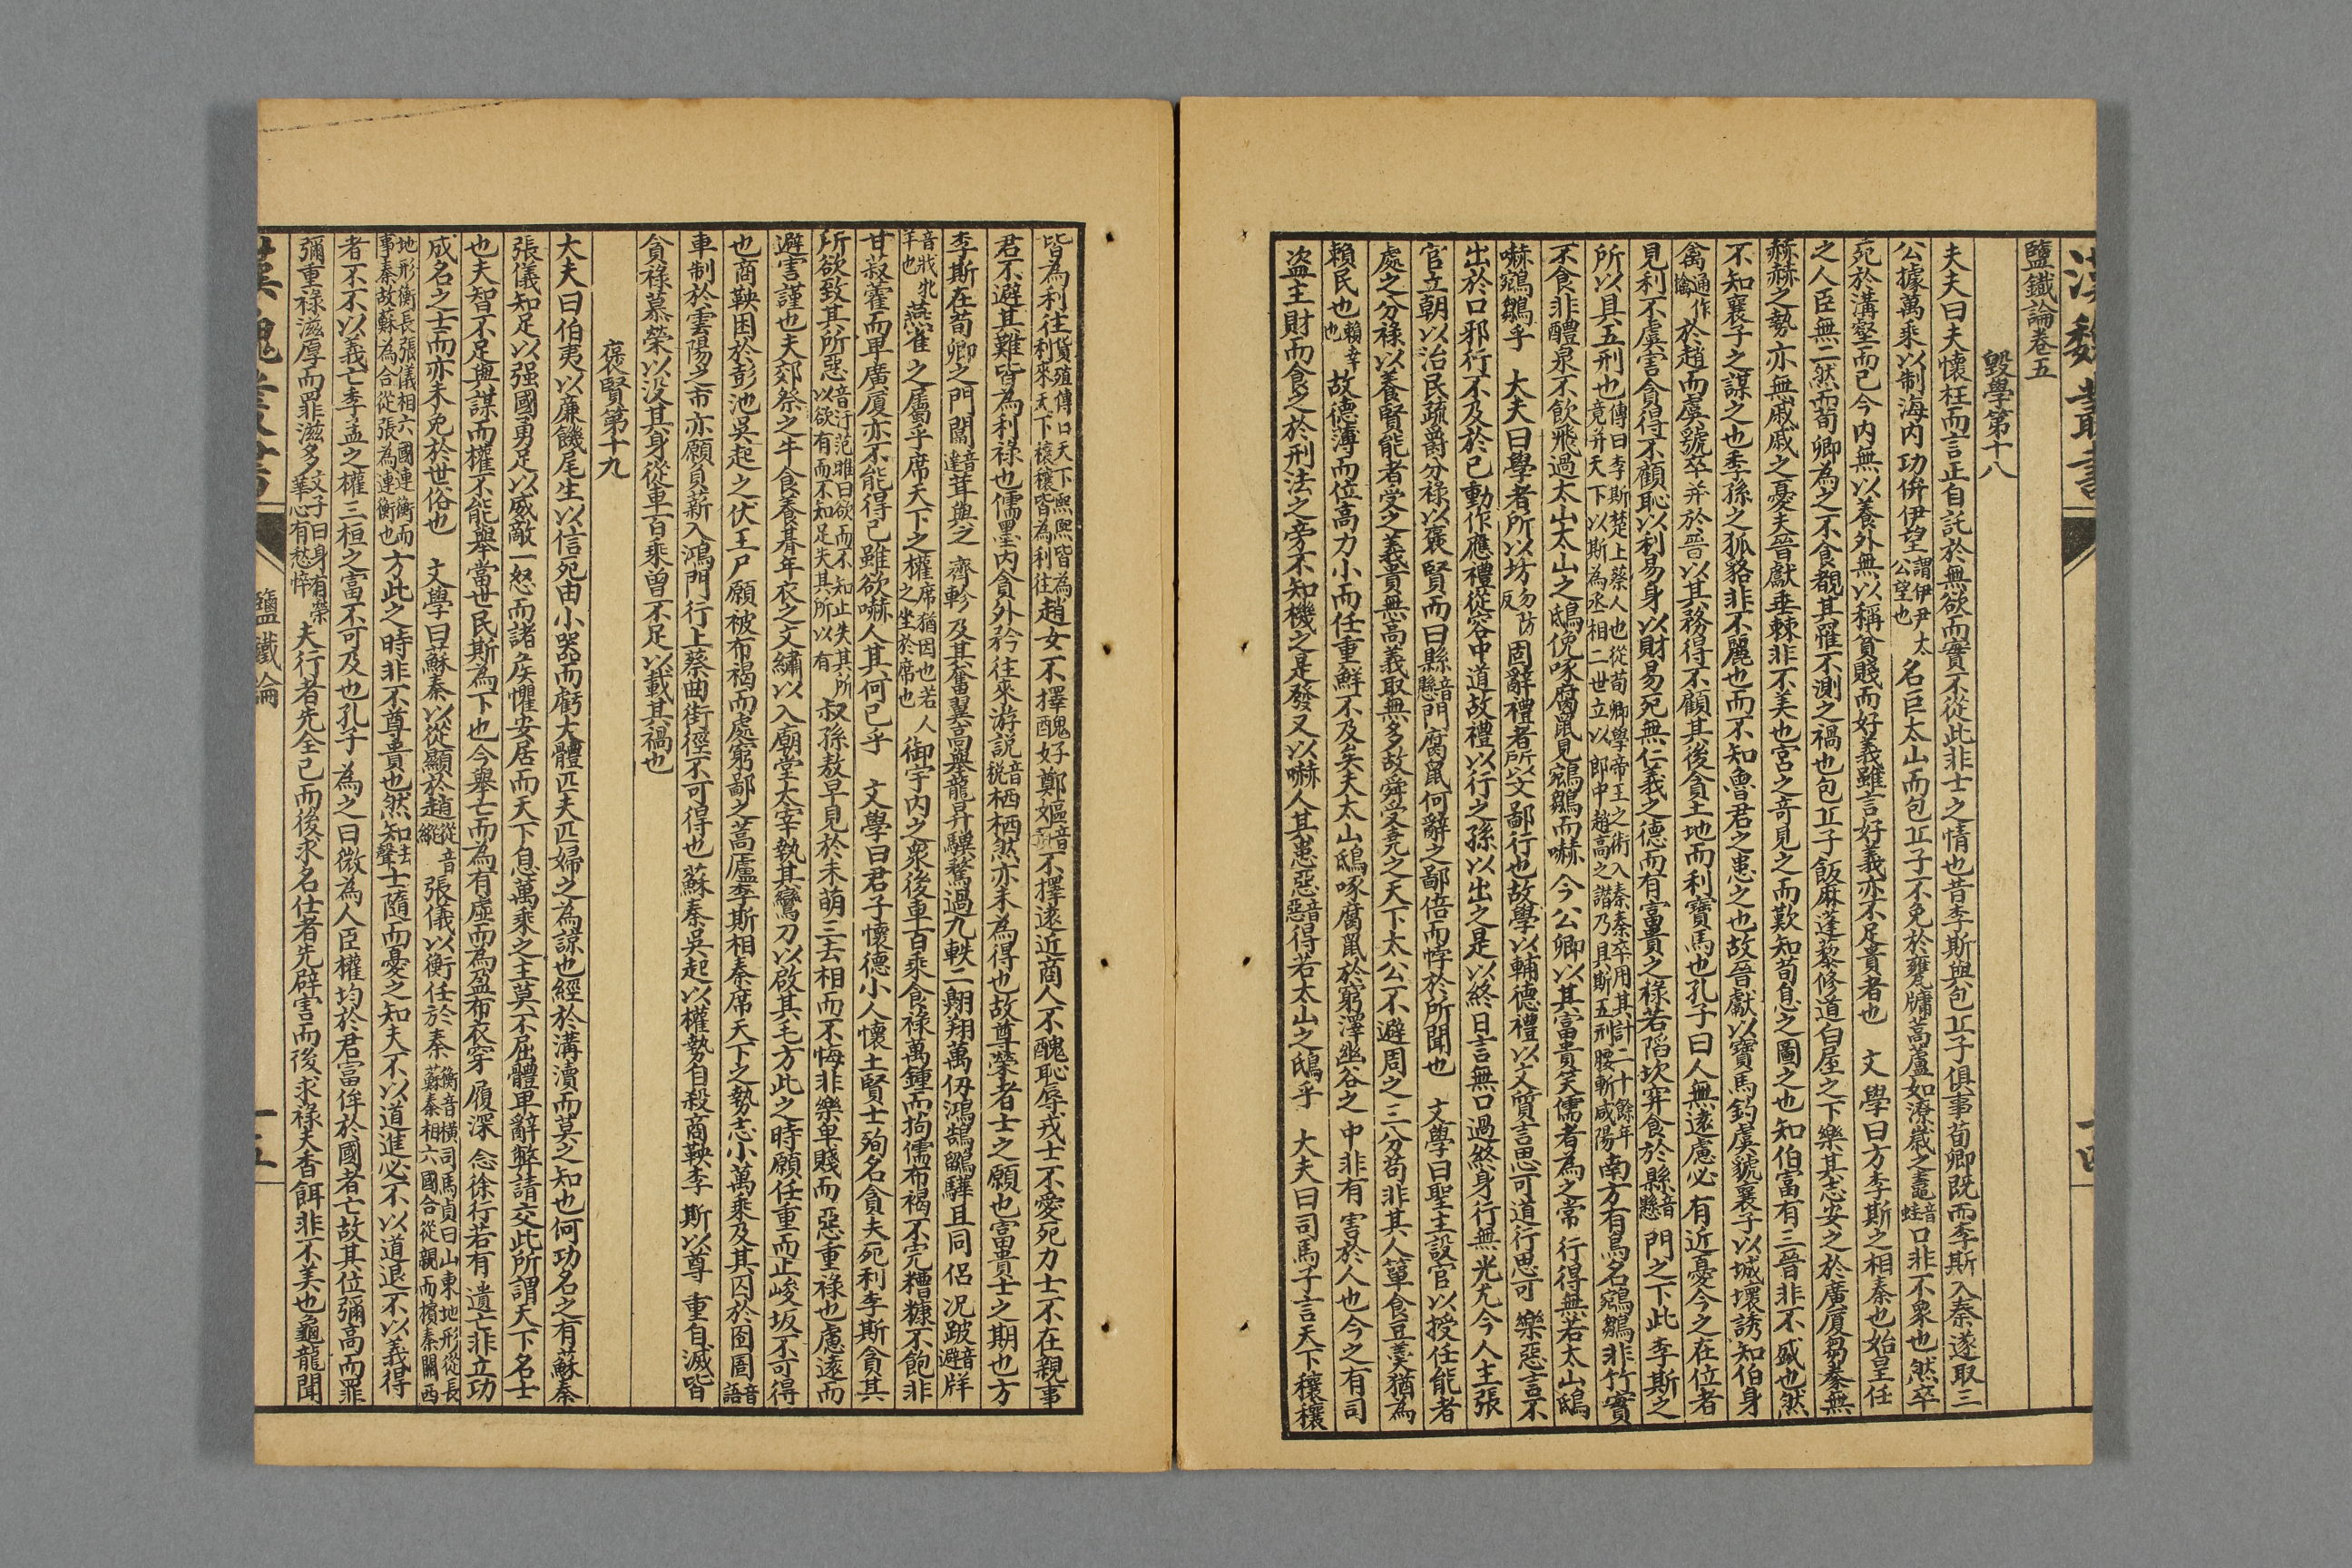 漢魏叢書
鹽鐵論卷五
毀學第十八
夫夫曰夫懷枉而言正自託於無欲而實不從此非士之情也昔李斯與包丘子俱事荀卿既而李斯入秦遂取三
公據萬乘以制海內功侔伊望謂伊尹太公望也名巨太山而包丘子不免於甕牖蒿廬如潦歲之鼃音蛙口非不衆也然卒
死於溝壑而已今內無以養外無以稱貧賤而好義雖言好義亦不足貴者也 文學曰方李斯之相秦也始皇任
之人臣無二然而荀卿為之不食覩其罹不測之禍也包丘子飯麻蓬藜修道白屋之下樂其志安之於廣廈芻豢無
赫赫之勢亦無戚戚之憂夫晉獻垂棘非不美也宮之奇見之而歎知荀息之圖之也知伯富有三晉非不盛也然
不知襄子之謀之也季孫之狐貉非不麗也而不知魯君之患之也故晉獻以寶馬釣虞虢襄子以城壞誘知伯身
禽通作擒於趙而虞虢卒并於晉以其務得不顧其後貪土地而利寶馬也孔子曰人無遠慮必有近憂今之在位者
見利不虞害貪得不顧恥以利易身以財易死無仁義之德而有富貴之祿若陷坎穽食於縣音懸門之下此李斯之
所以具五刑也傳曰李斯楚上蔡人也從荀卿學帝王之術入秦秦卒用其計二十餘年竟并天下以斯為丞相二世立以郎中趙高之譖乃具斯五刑腰斬咸陽南方有鳥名鵷鶵非竹實
不食非醴泉不飲飛過太山太山之鴟俛啄腐鼠見鵷鶵而嚇今公卿以其富貴笑儒者為之常行得無若太山鴟
嚇鵷鶵乎 大夫曰學者所以坊勿防反固辭禮者所以文鄙行也故學以輔德禮以文質言思可道行思可樂惡言不
出於口邪行不及於己動作應禮從容中道故禮以行之孫以出之是以終日言無口過終身行無寃尤今人主張
官立朝以治民疏爵分祿以褒賢而曰縣音懸門腐鼠何辭之鄙倍而悖於所聞也 文學曰聖主設官以授任能者
處之分祿以養賢能者受之義貴無高義取無多故舜受堯之天下太公不避周之三公苟非其人簞食豆羹猶為
賴民也賴幸也故德薄而位高力小而任重鮮不及矣夫太山鴟啄腐鼠於窮澤幽谷之中非有害於人也今之有司
盗主財而食之於刑法之旁不知機之是發又以嚇人其患惡音惡得若太山之鴟乎 大夫曰司馬子言天下穰穰
皆為利往貨殖傳曰天下熙熙皆為利來天下穰穰皆為利往趙女不擇醜好鄭嫗不擇遠近商人不醜恥辱戎士不愛死力士不在親事
君不避其難皆為利祿也儒墨內貪外矜往來游說音税栖栖然亦未為得也故尊榮者士之願也富貴士之期也方
李斯在荀卿之門闒音達茸與之齊軫及其奮翼高舉龍昇驥騖過九軼二翺翔萬仞鴻鵠鸖驊且同侶況跛音避牂
音牂牝羊也燕雀之屬乎席天下之權席猶因也若人之坐於席也御宇內之衆後車百乘食祿萬鍾而拘儒布褐不完糟糠不飽非
甘菽藿而卑廣厦亦不能得已雖欲嚇人其何已乎 文學曰君子懷德小人懷土賢士殉名貪夫死利李斯貪其
所欲致其所惡音汙范雎曰欲而不知止失其所以欲有而不知足失其所以有叔孫敖早見於未萌三去相而不悔非樂卑賤而惡重祿也慮遠而
避害謹也夫郊祭之牛食養朞年衣之文繡以入廟堂太宰執其鸞刀以啟其毛方此之時願任重而上峻坂不可得
也商鞅困於彭池吳起之伏王尸願被布褐而處窮鄙之蒿廬李斯相秦席天下之勢志小萬乘及其囚於囹圄音語
車制於雲陽之市亦願負薪入鴻門行上蔡曲街徑不可得也蘇秦吳起以權勢自殺商鞅李斯以尊重自滅皆
貪祿慕榮以没其身從車百乘曾不足以載其禍也
褒賢第十九
大夫曰伯夷以廉饑尾生以信死由小器而虧大體匹夫匹婦之為諒也經於溝瀆而莫之知也何功名之有蘇秦
張儀知足以强國勇足以威敵一怒而諸矦懼安居而天下息萬乘之主莫不屈體卑辭幣請交此所謂天下名士
也夫智不足與謀而權不能舉當世民斯為下也今舉亡而為有虛而為盈布衣穿履深念徐行若有遺亡非立功
成名之士而亦未免於世俗也 文學曰蘇秦以從顯於趙從音縱張儀以衡任於秦衡音横司馬貞曰山東地形從長蘇秦相六國合從親而擯秦關西
地形衡長張儀相六國連衡而事秦故蘇為合從張為連衡也方此之時非不尊貴也然知士隨而憂之知夫不以道進必不以道退不以義得
者不不以義亡季孟之權三桓之富不可及也孔子為之曰微為人臣權均於君富侔於國者亡故其位彌高而罪
彌重祿滋厚而罪滋多文子曰身有榮華心有愁悴夫行者先全己而後求名仕者先辟害而後求祿夫香餌非不美也龜龍聞
漢魏叢書
鹽鐵論
十五